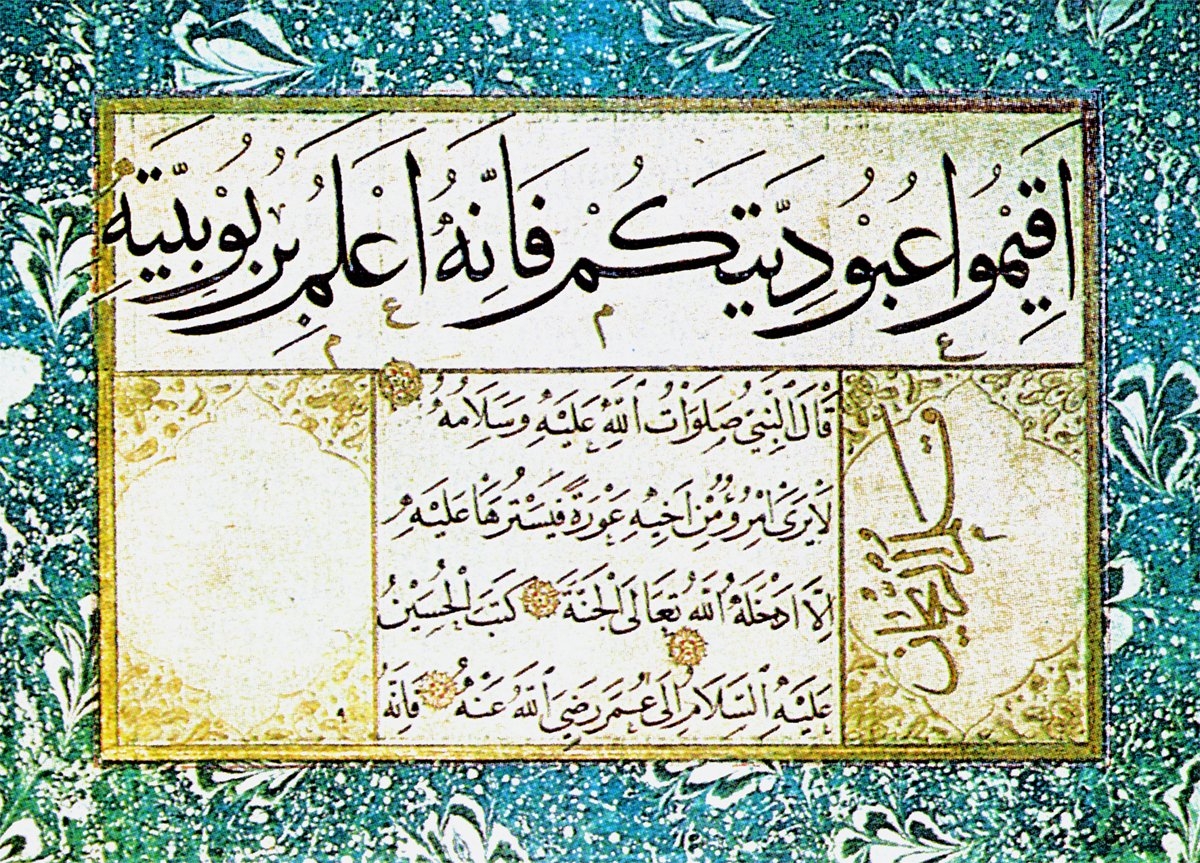 اَقِيْمُوا عُبُوْدِيَّتَكُمْ فَاِنَّهُ اَعْلَمُ بِرُبُوْبِيَّتِهِ
قَالَ النَّبِيُّ صَلَوَاتُ اللّٰهِ عَلَيْهِ وَسَلَامُهُ
لَا يَرَى امْرُؤٌ مِنْ اَخِيْهِ عَوْرَةً فَيَسْتُرُهَا عَلَيْهِ
اِلَّا اَدْخَلَهُ اللّٰهُ تَعَالَى الْجَنَّةَ كَتَبَ الْحُسَيْنُ
عَلَيْهِ السَّلَامُ اِلَى عُمَرَ رَضِيَ اللّٰهُ عَنْهُ فَاِنَّهُ
قلم الريحان